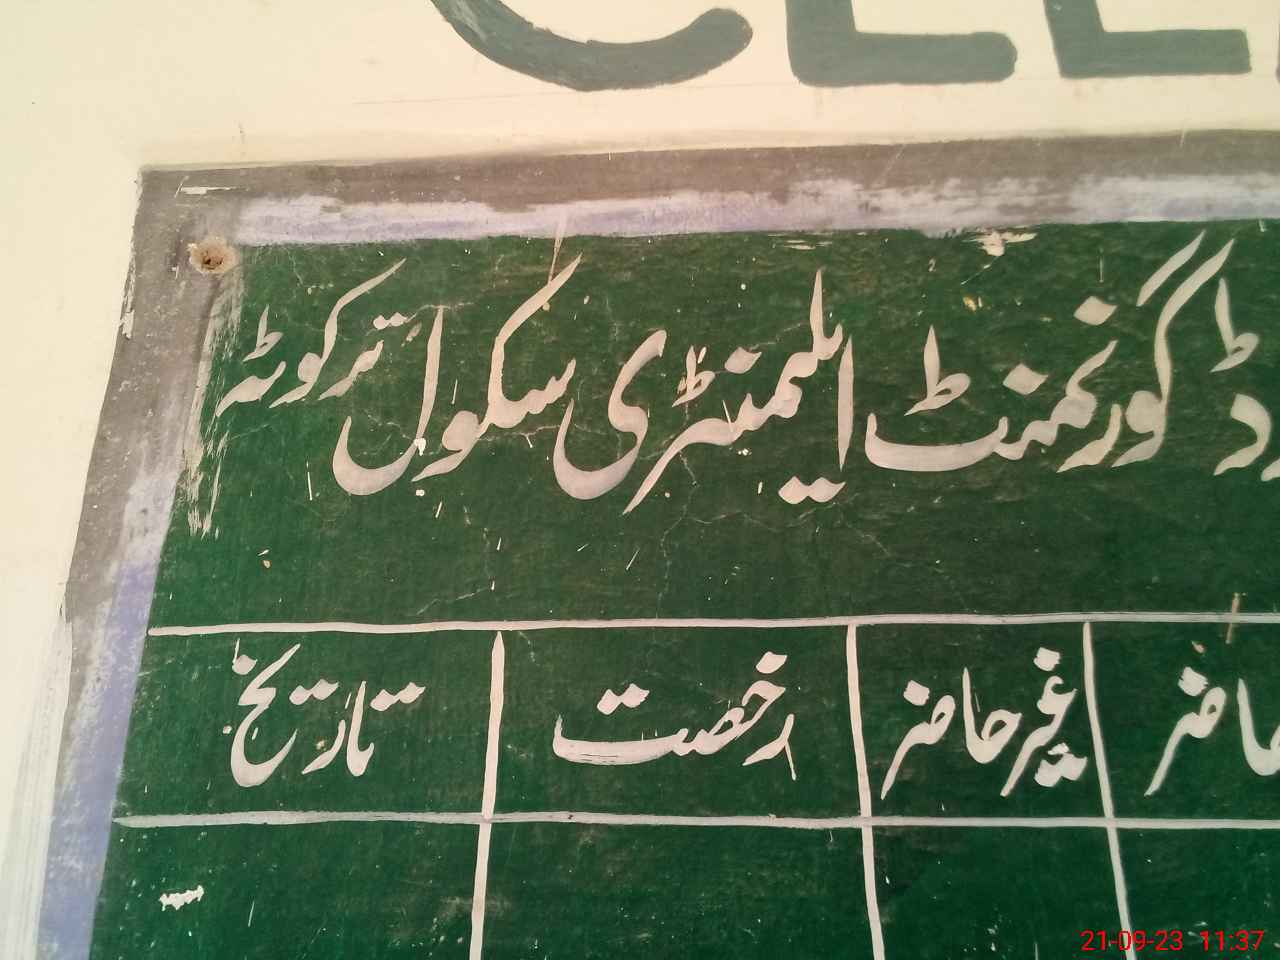 گورنمنٹ ایلیمنٹری سکول ترکوٹہ
حاضر غیر حاضر رخصت تاریخ
21-09-23 11:37